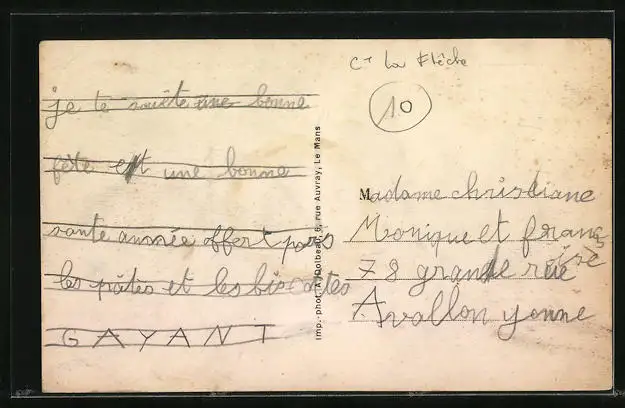 Ct La Flèche
10
je te souète une bonne
fête et une bonne
sante année offert pars
les pâtes et les biscottes
GAYANT
Imp.-phot. A. Dolbeau, 6, rue Auvray, Le Mans
Madame christiane
Monique et franç
oise
78 grande rue
Avallon yonne